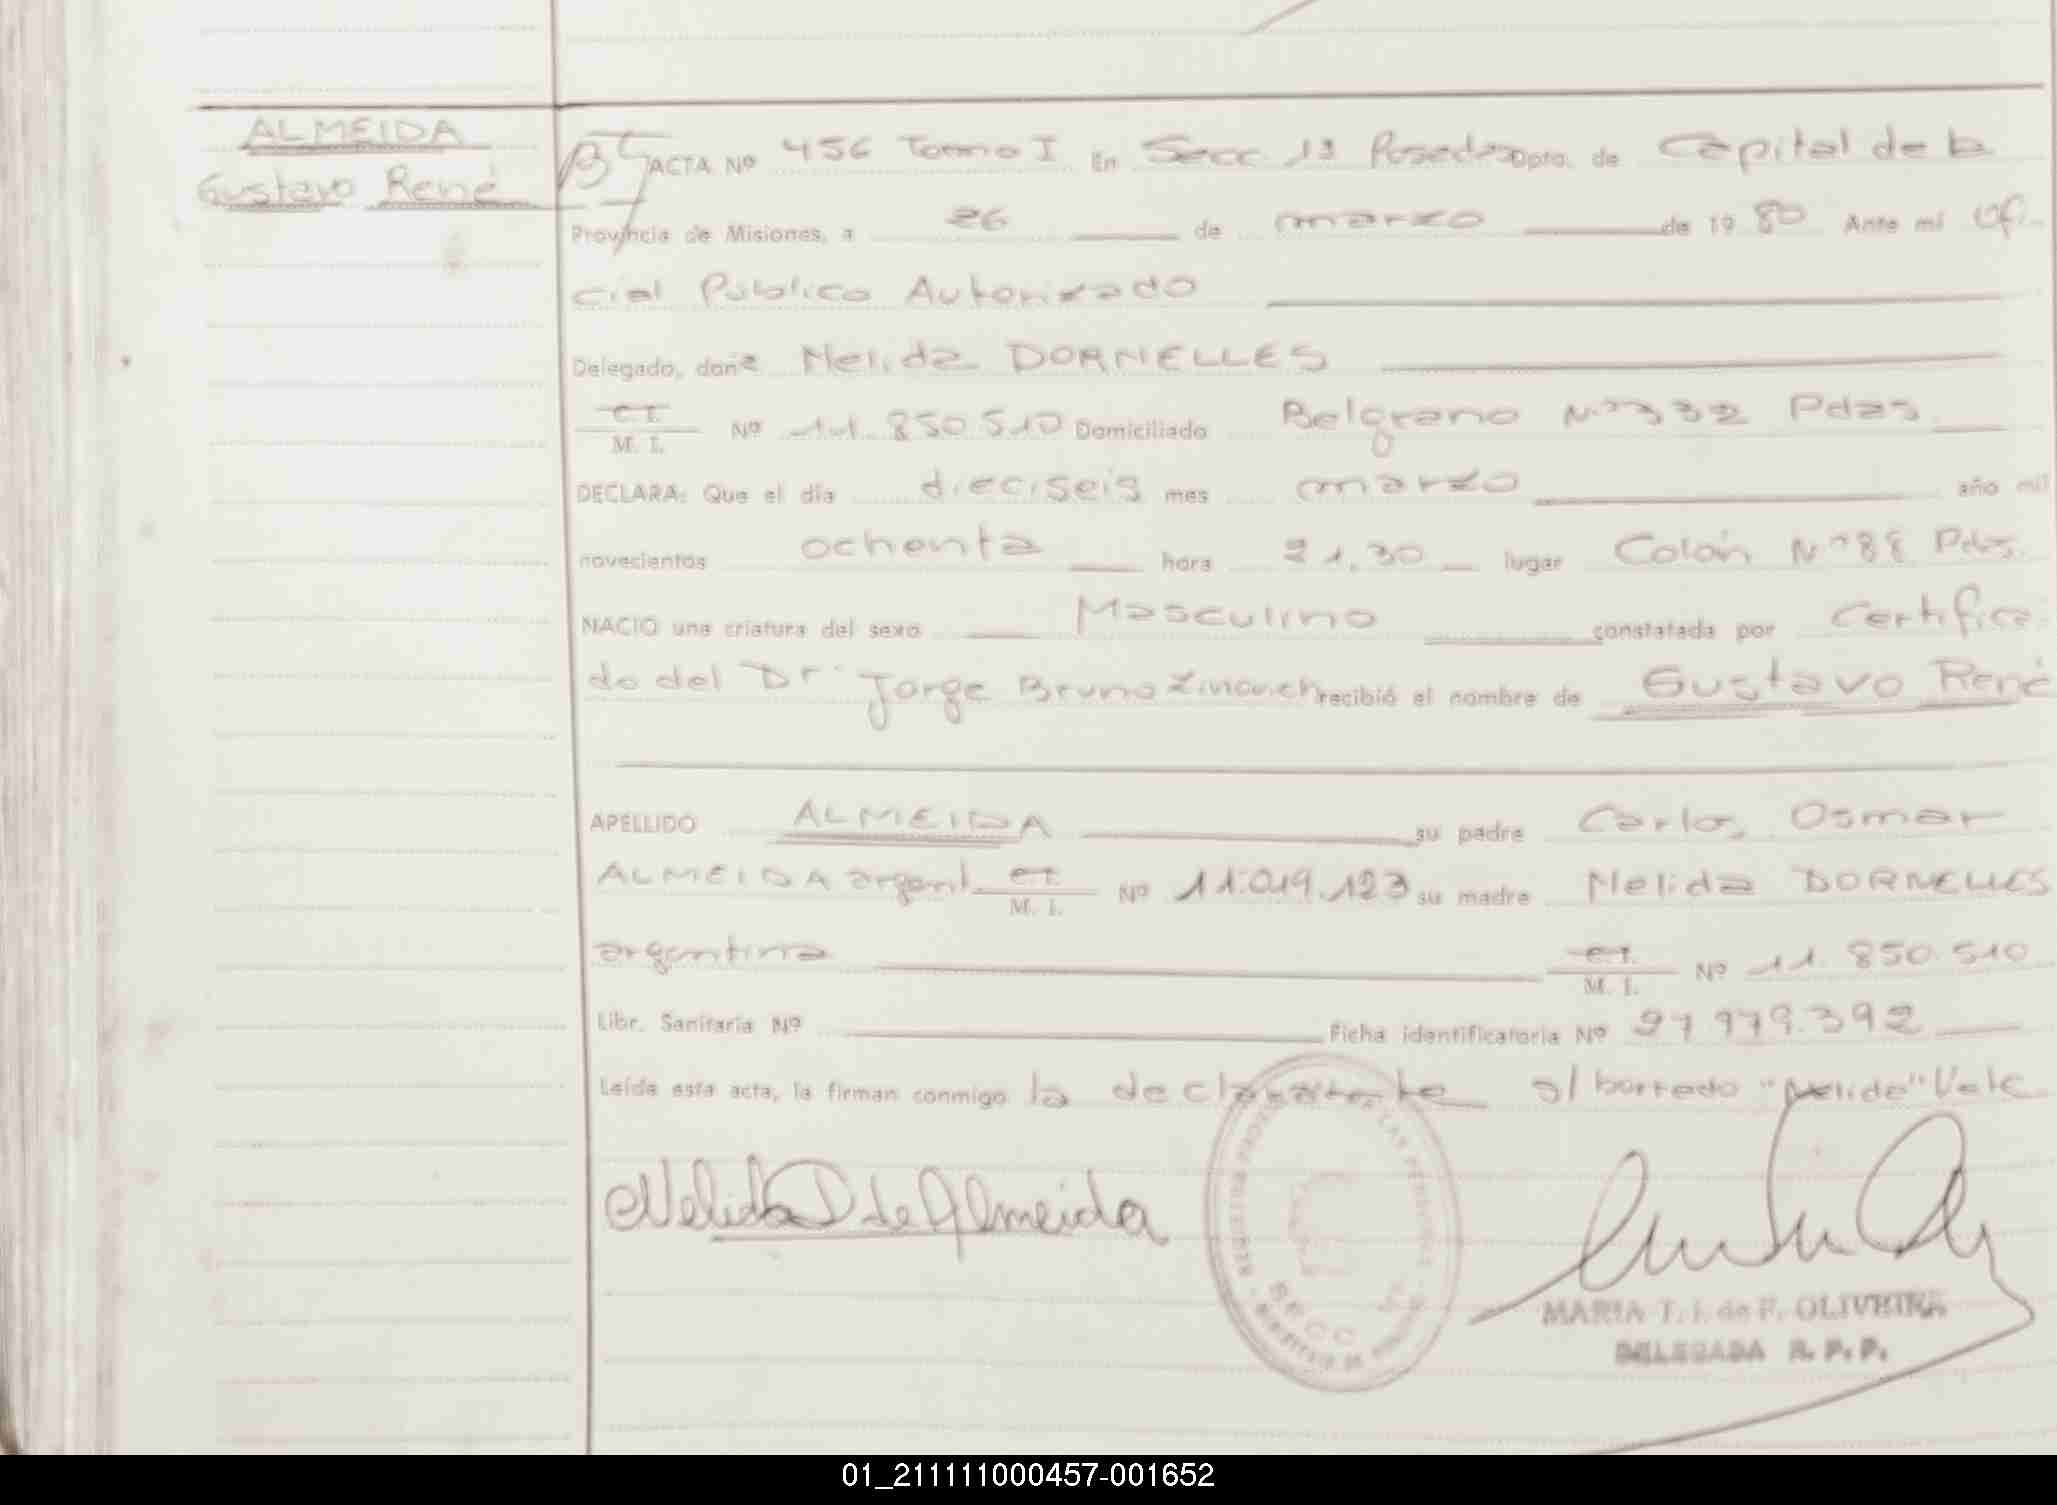 ALMEIDA
Gustavo René
ACTA Nº 456 Tomo I En Secc. 1ª Posadas Dpto. de Capital de la
Provincia de Misiones, a 26 de marzo de 1980 Ante mi Ofi
cial Público Autorizado
Delegado, doña Nelida DORNELLES
C.I.
M. I. Nº 11.850.510 Domiciliado Belgrano Nº 332 Pdas
DECLARA: Que el día dieciseis mes marzo año mil
novecientos ochenta hora 21,30 lugar Colón Nº 88 Pdas.
NACIO una criatura del sexo Masculino constatada por Certifica
do del Dr. Jorge Bruno Zinovich recibió el nombre de Gustavo René
APELLIDO ALMEIDA su padre Carlos Osmar
ALMEIDA argent. C.I.
M. I. Nº 11.019.123 su madre Nelida DORNELLES
argentina C.I.
M. I. Nº 11.850.510
Libr. Sanitaria Nº Ficha identificatoria Nº 27.979.392
Leída esta acta, la firman conmigo la declarante s/ borrado "Nelida" Vale
Nelida D de Almeida
SECC
MARIA T. I. de F. OLIVEIRA
DELEGADA R. P. P.
01_211111000457-001652